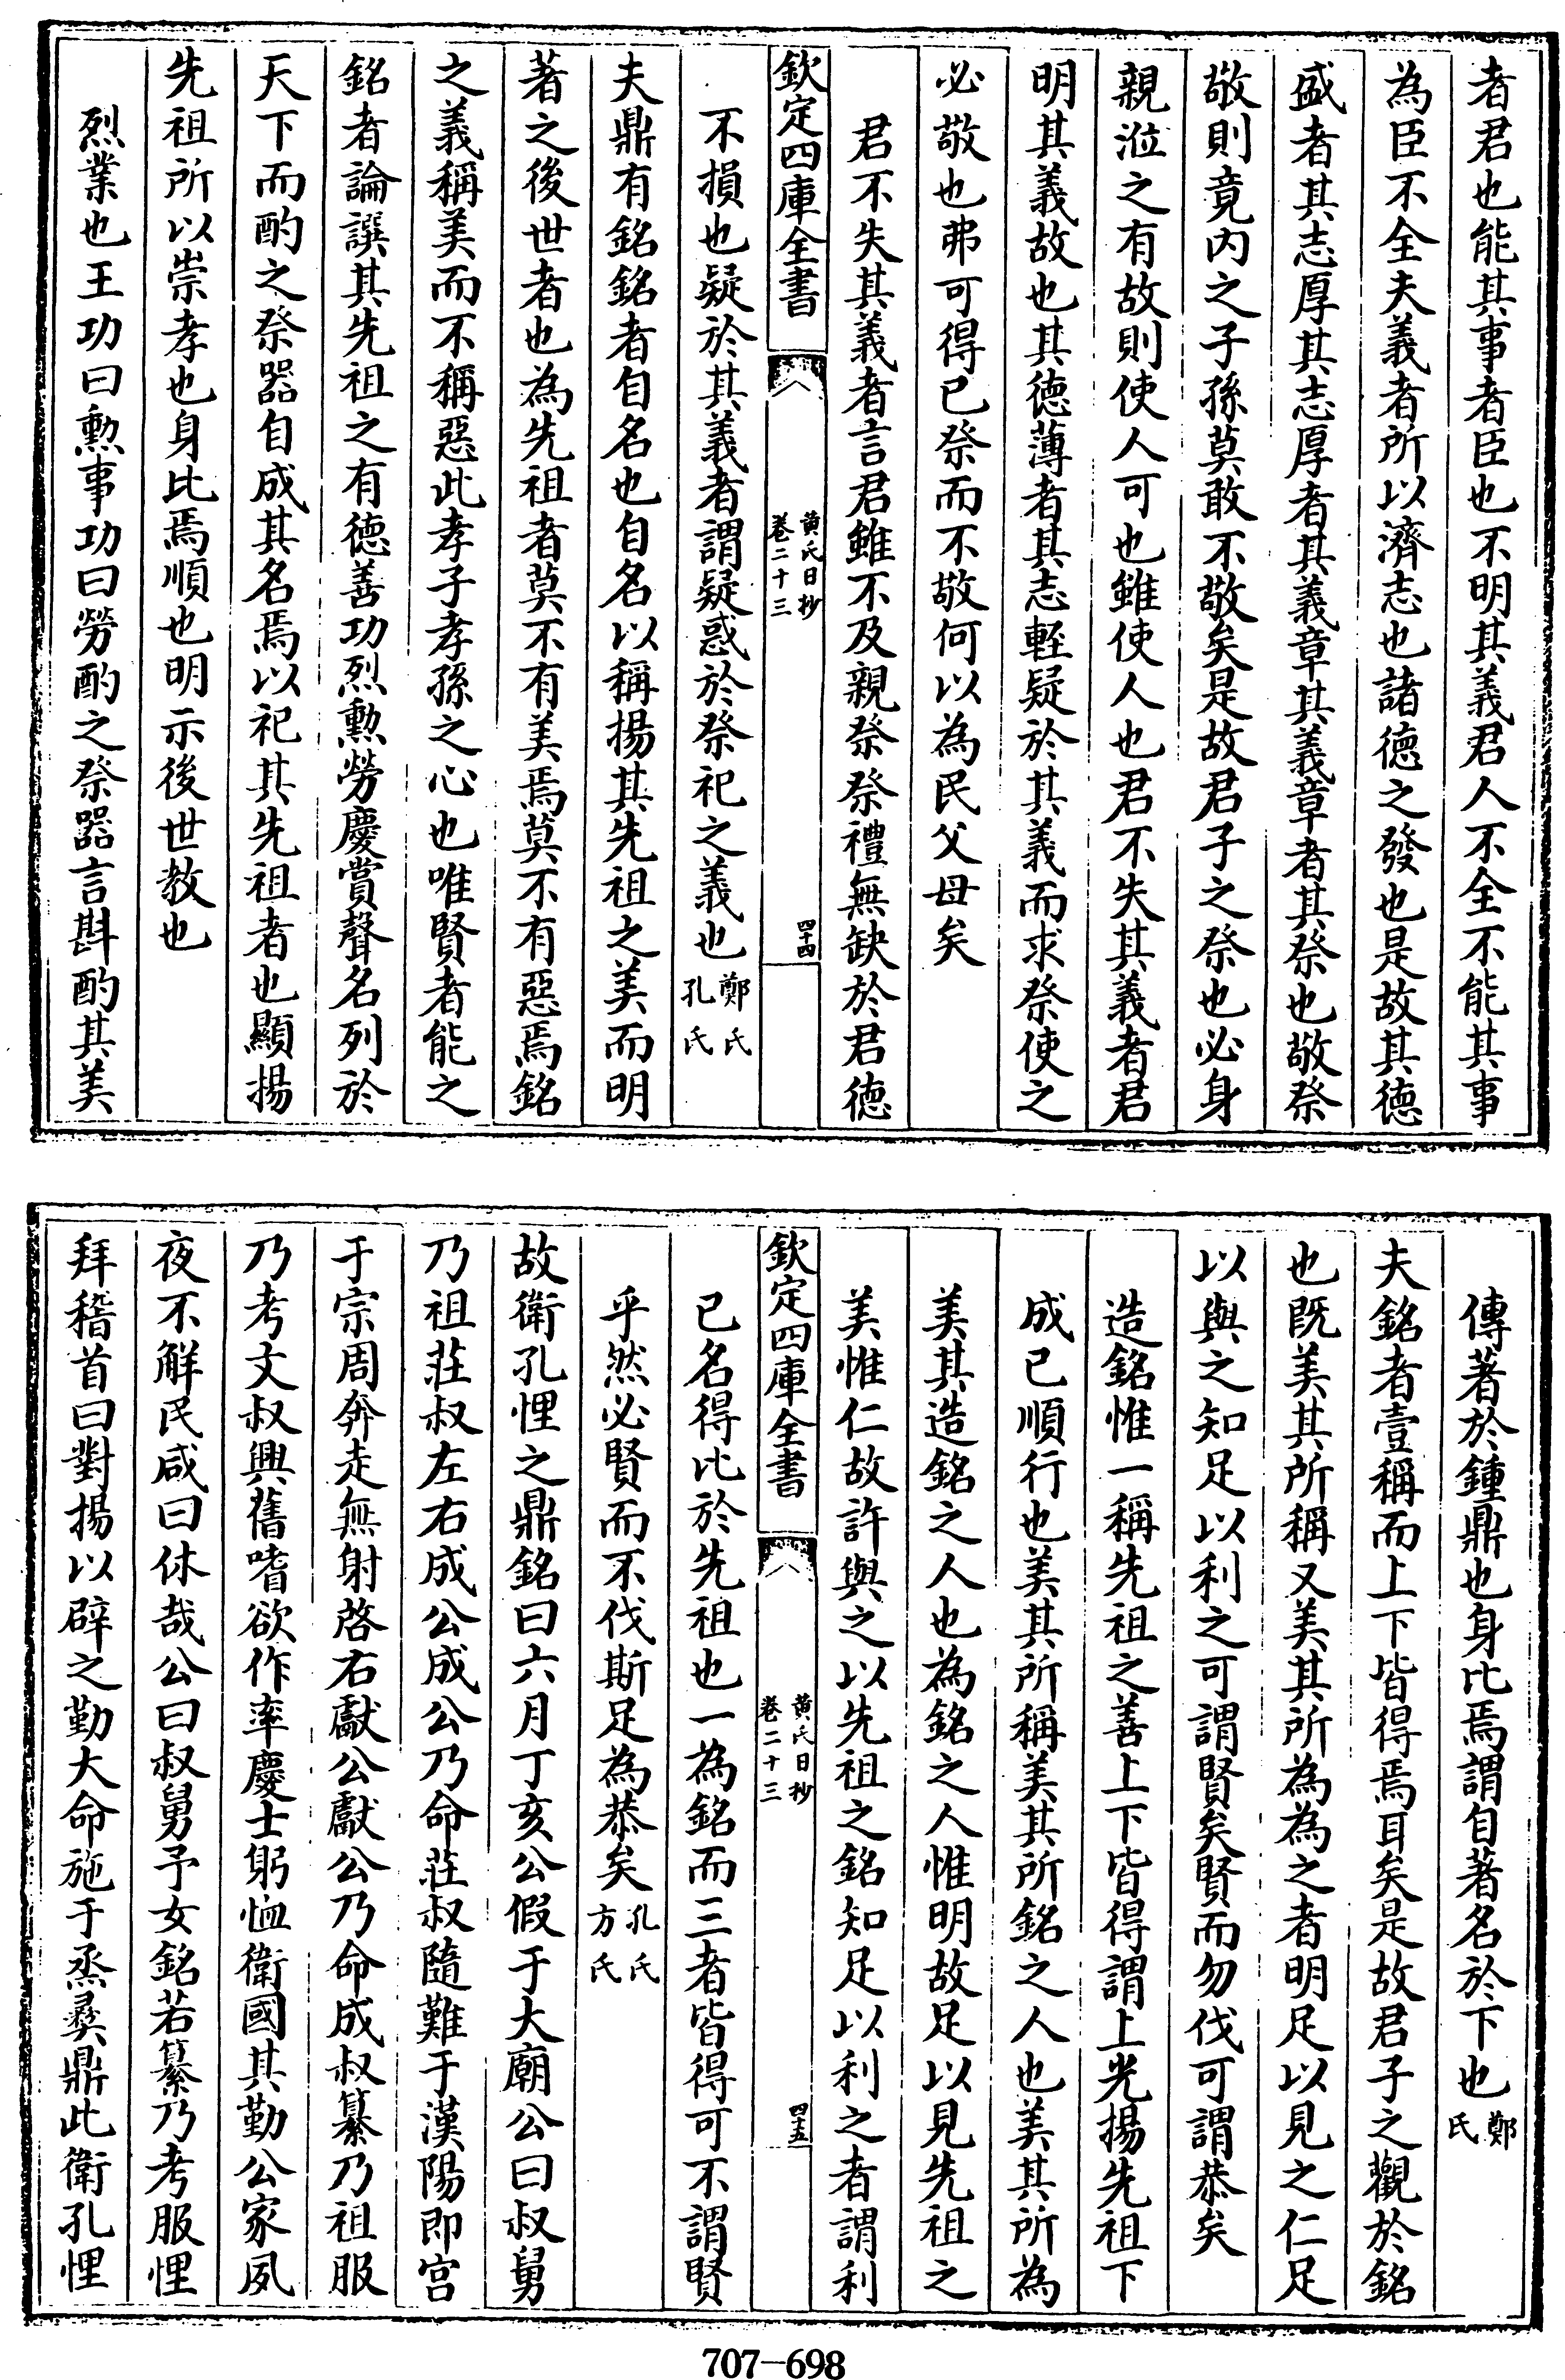 者君也能其事者臣也不明其義君人不全不能其事
為臣不全夫義者所以濟志也諸徳之發也是故其徳
盛者其志厚其志厚者其義章其義章者其祭也敬祭
敬則竟内之子孫莫敢不敬矣是故君子之祭也必身
親涖之有故則使人可也雖使人也君不失其義者君
明其義故也其徳薄者其志輕疑於其義而求祭使之
必敬也弗可得已祭而不敬何以為民父母矣
君不失其義者言君雖不及親祭祭禮無缺於君徳
欽定四庫全書
黄氏日抄
卷二十三
四十四
不損也疑於其義者謂疑惑於祭祀之義也鄭氏
孔氏
夫鼎有銘銘者自名也自名以稱揚其先祖之美而明
著之後世者也為先祖者莫不有美焉莫不有惡焉銘
之義稱美而不稱惡此孝子孝孫之心也唯賢者能之
銘者論譔其先祖之有徳善功烈勲勞慶賞聲名列於
天下而酌之祭器自成其名焉以祀其先祖者也顯揚
先祖所以崇孝也身比焉順也明示後世教也
烈業也王功曰勲事功曰勞酌之祭器言斟酌其美
傳著於鍾鼎也身比焉謂自著名於下也鄭
氏
夫銘者壹稱而上下皆得焉耳矣是故君子之觀於銘
也既美其所稱又美其所為為之者明足以見之仁足
以與之知足以利之可謂賢矣賢而勿伐可謂恭矣
造銘惟一稱先祖之善上下皆得謂上光揚先祖下
成已順行也美其所稱美其所銘之人也美其所為
美其造銘之人也為銘之人惟明故足以見先祖之
美惟仁故許與之以先祖之銘知足以利之者謂利
欽定四庫全書
黄氏日抄
卷二十三
四十五
已名得比於先祖也一為銘而三者皆得可不謂賢
乎然必賢而不伐斯足為恭矣孔氏
方氏
故衛孔悝之鼎銘曰六月丁亥公假于大廟公曰叔舅
乃祖莊叔左右成公成公乃命莊叔隨難于漢陽即宫
于宗周奔走無射啓右獻公獻公乃命成叔纂乃祖服
乃考文叔興舊嗜欲作率慶士躬恤衛國其勤公家夙
夜不解民咸曰休哉公曰叔舅予女銘若纂乃考服悝
拜稽首曰對揚以辟之勤大命施于烝彞鼎此衛孔悝
707-698